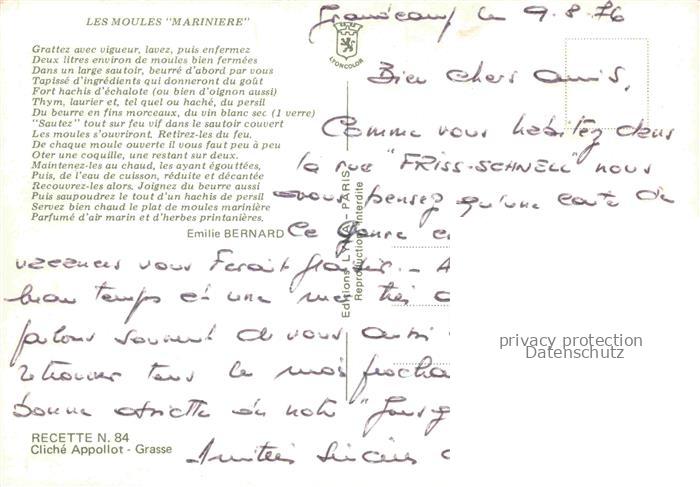 LES MOULES "MARINIERE"
Grattez avec vigueur, lavez, puis enfermez
Deux litres environ de moules bien fermées
Dans un large sautoir, beurré d'abord par vous
Tapissé d'ingrédients qui donneront du goût
Fort hachis d'échalote (ou bien d'oignon aussi)
Thym, laurier et, tel quel ou haché, du persil
Du beurre en fins morceaux, du vin blanc sec (1 verre)
"Sautez" tout sur feu vif dans le sautoir couvert
Les moules s'ouvriront. Retirez-les du feu,
De chaque moule ouverte il vous faut peu à peu
Oter une coquille, une restant sur deux.
Maintenez-les au chaud, les ayant égouttées,
Puis, de l'eau de cuisson, réduite et décantée
Recouvrez-les alors. Joignez du beurre aussi
Puis saupoudrez le tout d'un hachis de persil
Servez bien chaud le plat de moules marinière
Parfumé d'air marin et d'herbes printanières.
Emilie BERNARD
RECETTE N. 84
Cliché Appollot - Grasse
LYONCOLOR
Editions LYNA - PARIS
Reproduction interdite
Grandcamp le 9.8.76
Bien chers amis,
Comme vous habitez dans
la rue "FRISS-SCHNELL" nous
avons pensez qu'une carte de
ce genre
vacances vous ferait plaisir. - A
beau temps et une mer très
parlons souvent de vous aussi
retrouver tous le mois procha
bonne assiette de note
Amitiés sincères
privacy protection
Datenschutz